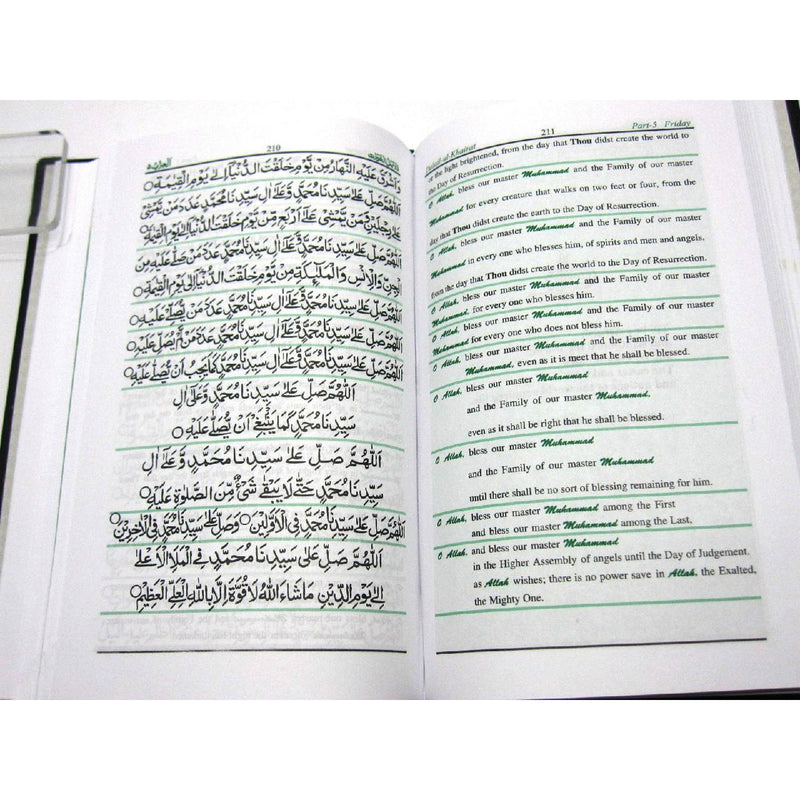 210
وَاَشْرَقَ عَلَيْهِ النَّهَارُ مِنْ يَوْمِ خَلَقْتَ الدُّنْيَآ اِلٰى يَوْمِ الْقِيٰمَةِ ○
اَللّٰهُمَّ صَلِّ عَلٰى سَيِّدِنَا مُحَمَّدٍ وَّعَلٰٓى اٰلِ سَيِّدِنَا مُحَمَّدٍ عَدَدَ مَنْ يَّمْشِىْ
عَلٰى رِجْلَيْنِ وَمَنْ يَّمْشِىْ عَلٰٓى اَرْبَعٍ مِنْ يَوْمِ خَلَقْتَ الدُّنْيَآ اِلٰى يَوْمِ الْقِيٰمَةِ
اَللّٰهُمَّ صَلِّ عَلٰى سَيِّدِنَا مُحَمَّدٍ وَّعَلٰٓى اٰلِ سَيِّدِنَا مُحَمَّدٍ عَدَدَ مَنْ صَلّٰى عَلَيْهِ مِنَ
الْجِنِّ وَالْاِنْسِ وَالْمَلٰٓئِكَةِ مِنْ يَوْمِ خَلَقْتَ الدُّنْيَآ اِلٰى يَوْمِ الْقِيٰمَةِ ○
اَللّٰهُمَّ صَلِّ عَلٰى سَيِّدِنَا مُحَمَّدٍ وَّعَلٰٓى اٰلِ سَيِّدِنَا مُحَمَّدٍ عَدَدَ مَنْ يُّصَلِّىْ عَلَيْهِ ○
اَللّٰهُمَّ صَلِّ عَلٰى سَيِّدِنَا مُحَمَّدٍ وَّعَلٰٓى اٰلِ سَيِّدِنَا مُحَمَّدٍ عَدَدَ مَنْ لَّمْ يُصَلِّ عَلَيْهِ ○
اَللّٰهُمَّ صَلِّ عَلٰى سَيِّدِنَا مُحَمَّدٍ وَّعَلٰٓى اٰلِ سَيِّدِنَا مُحَمَّدٍ كَمَا يَجِبُ اَنْ يُّصَلّٰى عَلَيْهِ ○
اَللّٰهُمَّ صَلِّ عَلٰى سَيِّدِنَا مُحَمَّدٍ وَّعَلٰٓى اٰلِ
سَيِّدِنَا مُحَمَّدٍ كَمَا يَنْۢبَغِىْ اَنْ يُّصَلّٰى عَلَيْهِ ○
اَللّٰهُمَّ صَلِّ عَلٰى سَيِّدِنَا مُحَمَّدٍ وَّعَلٰٓى اٰلِ
سَيِّدِنَا مُحَمَّدٍ حَتّٰى لَا يَبْقٰى شَىْءٌ مِّنَ الصَّلٰوةِ عَلَيْهِ ○
اَللّٰهُمَّ صَلِّ عَلٰى سَيِّدِنَا مُحَمَّدٍ فِى الْاَوَّلِيْنَ ○ وَصَلِّ عَلٰى سَيِّدِنَا مُحَمَّدٍ فِى الْاٰخِرِيْنَ ○
اَللّٰهُمَّ صَلِّ عَلٰى سَيِّدِنَا مُحَمَّدٍ فِى الْمَلَاِ الْاَعْلٰٓى
اِلٰى يَوْمِ الدِّيْنِ مَاشَآءَ اللّٰهُ لَا قُوَّةَ اِلَّا بِاللّٰهِ الْعَلِىِّ الْعَظِيْمِ ○
Dalail-ul-Khairat 211 Part-5 Friday
of the light brightened, from the day that Thou didst create the world to
the Day of Resurrection.
O Allah, bless our master Muhammad and the Family of our master
Muhammad for every creature that walks on two feet or four, from the
day that Thou didst create the earth to the Day of Resurrection.
O Allah, bless our master Muhammad and the Family of our master
Muhammad in every one who blesses him, of spirits and men and angels,
from the day that Thou didst create the world to the Day of Resurrection.
O Allah, bless our master Muhammad and the Family of our master
Muhammad, for every one who blesses him.
O Allah, bless our master Muhammad and the Family of our master
Muhammad for every one who does not bless him.
O Allah, bless our master Muhammad and the Family of our master
Muhammad, even as it is meet that he shall be blessed.
O Allah, bless our master Muhammad
and the Family of our master Muhammad,
even as it shall be right that he shall be blessed.
O Allah, bless our master Muhammad
and the Family of our master Muhammad
until there shall be no sort of blessing remaining for him.
O Allah, bless our master Muhammad among the First
and bless our master Muhammad among the Last,
O Allah, and bless our master Muhammad
in the Higher Assembly of angels until the Day of Judgement,
as Allah wishes; there is no power save in Allah, the Exalted,
the Mighty One.